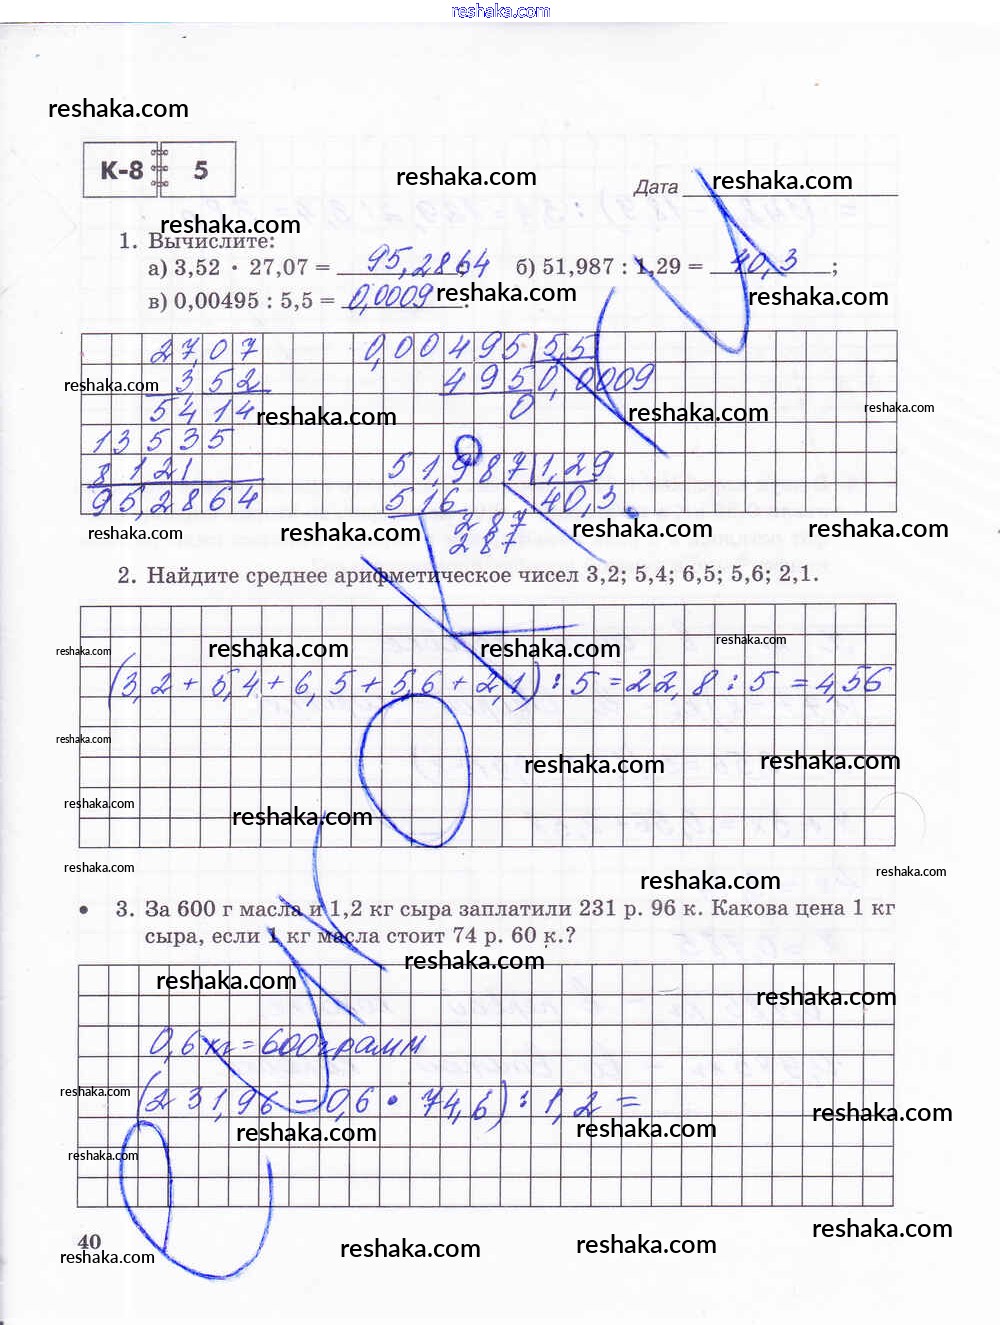 reshaka.com
reshaka.com
К-8 5
reshaka.com
Дата reshaka.com
reshaka.com
1. Вычислите:
а) 3,52 · 27,07 = 95,2864 б) 51,987 : 1,29 = 40,3 ;
в) 0,00495 : 5,5 = 0,0009 . reshaka.com
reshaka.com
27,07 0,00495 5,5
reshaka.com 3 52 495 0,0009
5414 0
reshaka.com reshaka.com reshaka.com
13535
8121 51,987 1,29
95,2864 516 40,3
287
reshaka.com reshaka.com reshaka.com reshaka.com
287
2. Найдите среднее арифметическое чисел 3,2; 5,4; 6,5; 5,6; 2,1.
reshaka.com reshaka.com reshaka.com reshaka.com
(3,2 + 5,4 + 6,5 + 5,6 + 2,1) : 5 = 22,8 : 5 = 4,56
reshaka.com
reshaka.com reshaka.com
reshaka.com reshaka.com
reshaka.com reshaka.com reshaka.com
• 3. За 600 г масла и 1,2 кг сыра заплатили 231 р. 96 к. Какова цена 1 кг
сыра, если 1 кг масла стоит 74 р. 60 к.?
reshaka.com
reshaka.com reshaka.com
0,6 кг = 600 грамм
reshaka.com
(231,96 - 0,6 · 74,6) : 1,2 =
reshaka.com
reshaka.com reshaka.com
reshaka.com
40
reshaka.com reshaka.com reshaka.com reshaka.com